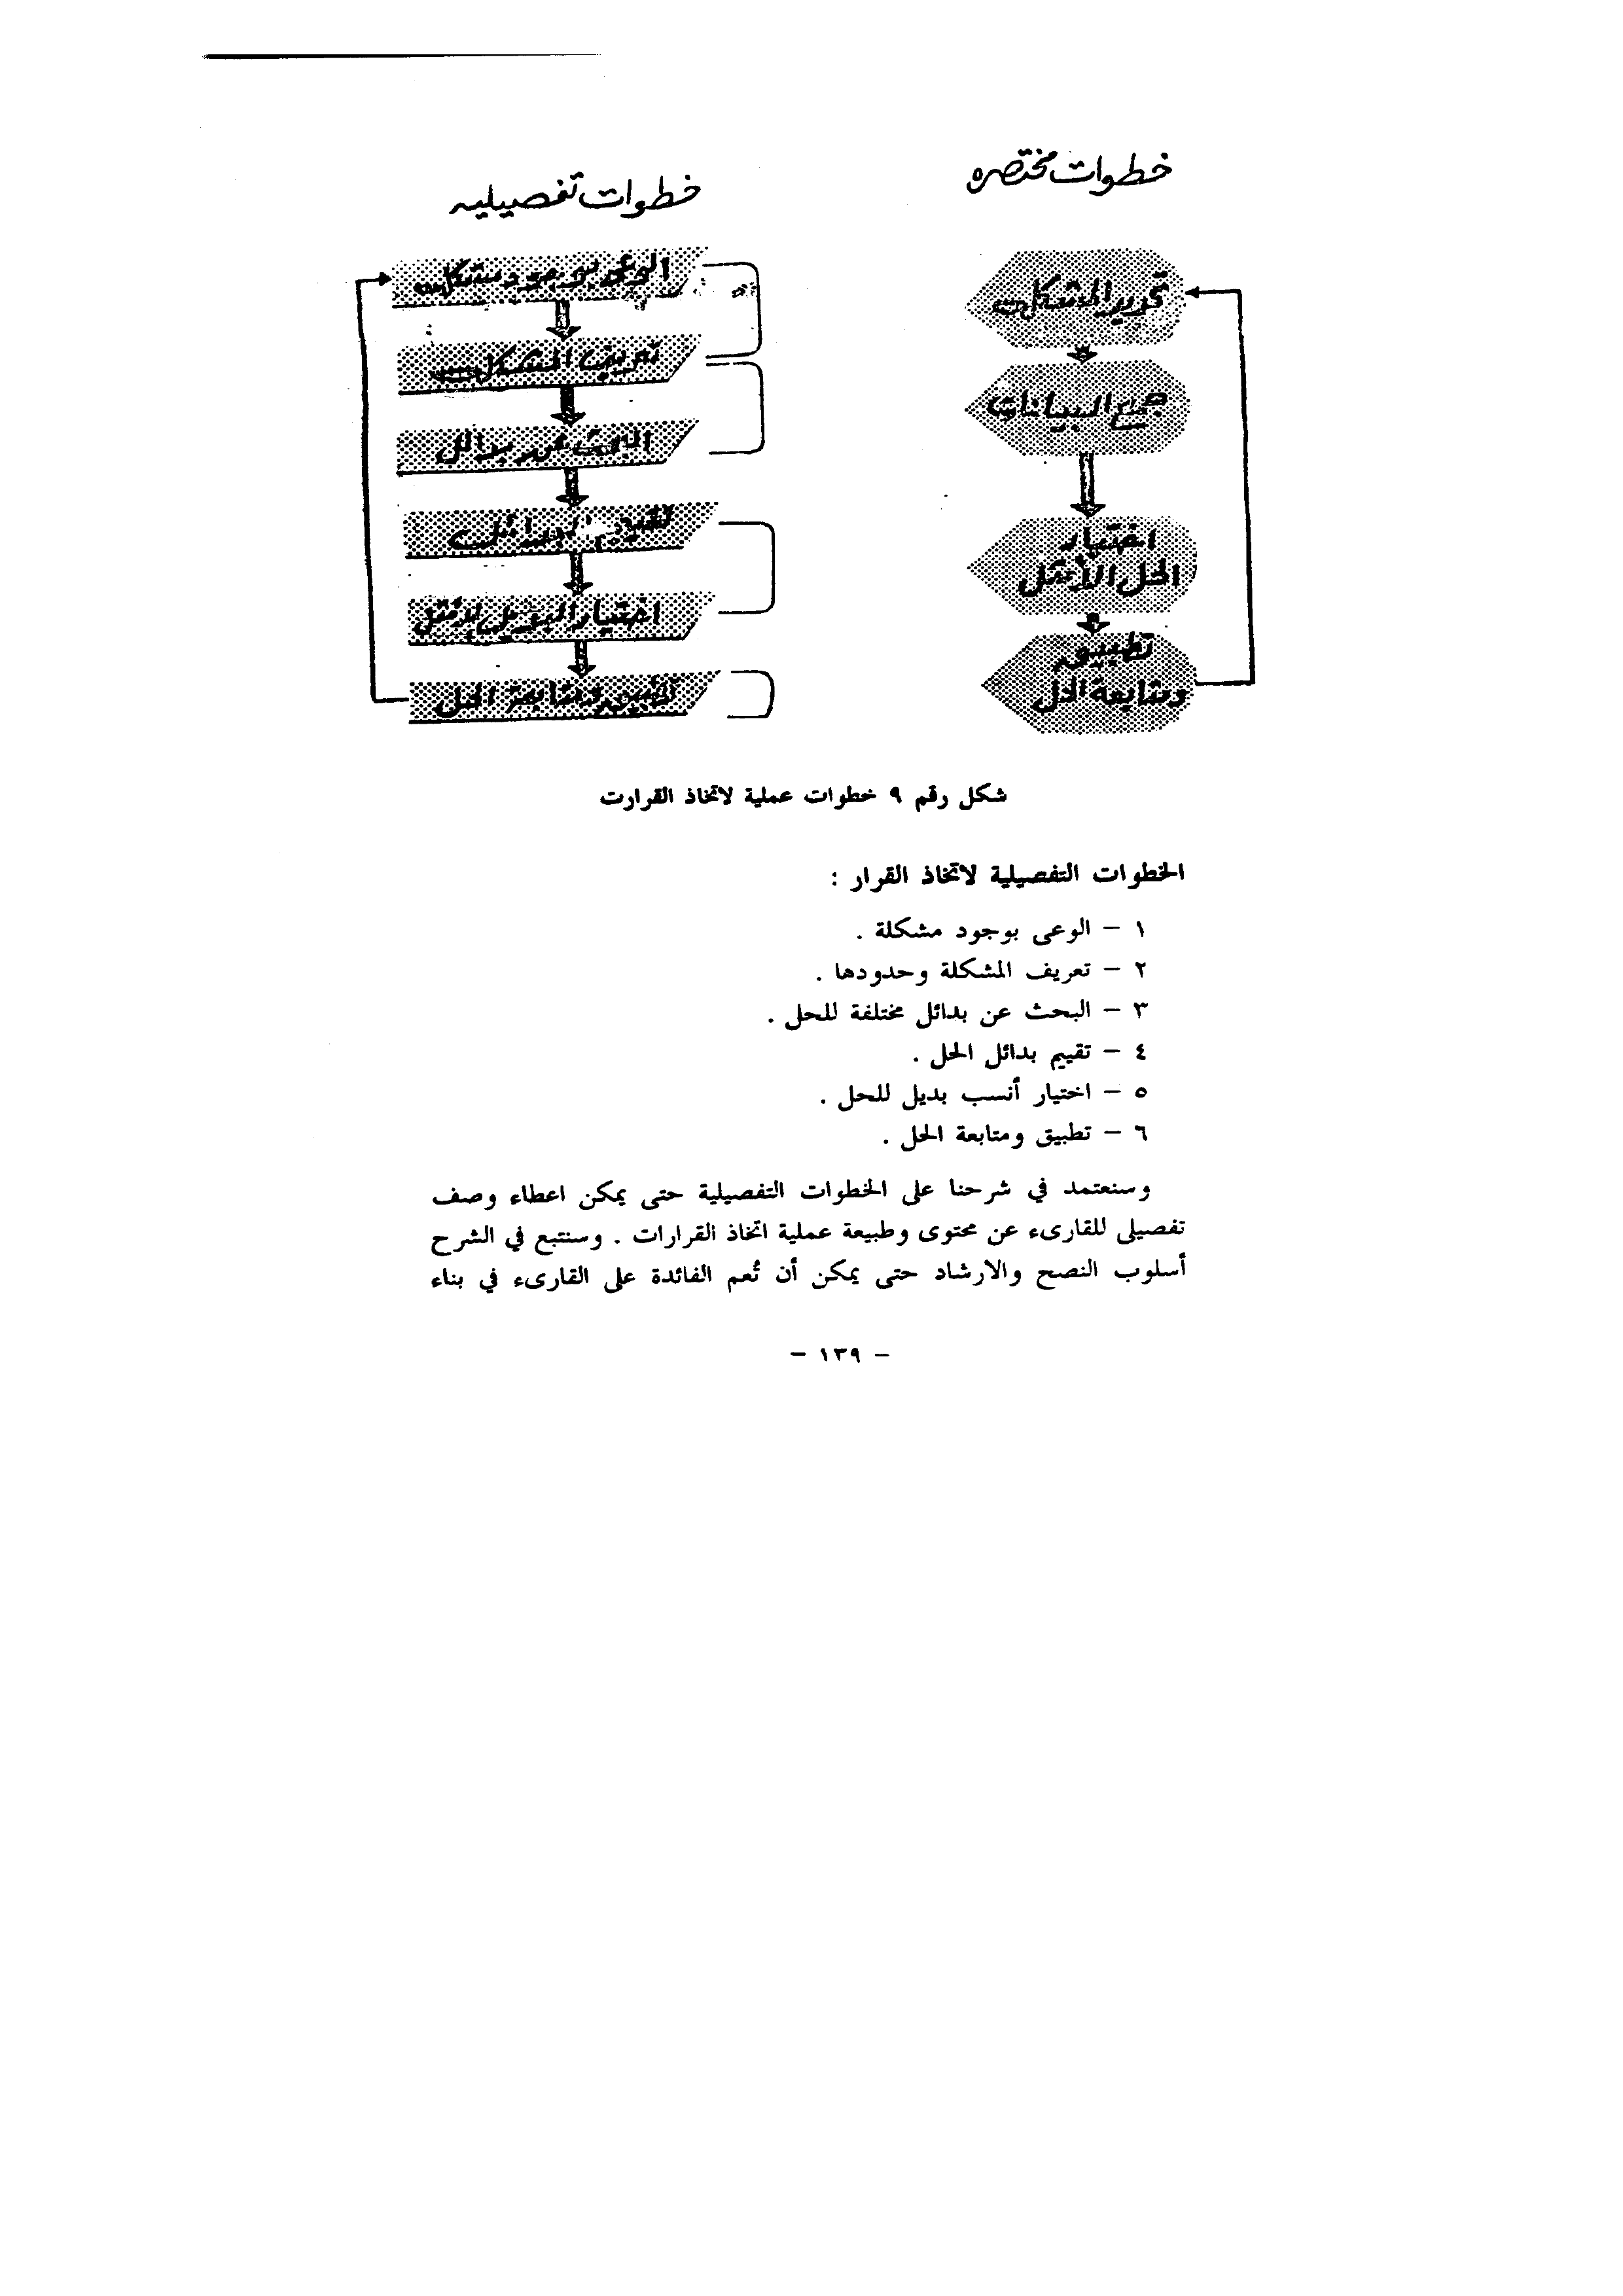 خطوات مختصره
تحديد المشكلة
جمع البيانات
اختيار
الحل الأمثل
تطبيق
ومتابعة الحل
خطوات تفصيليه
الوعى بوجود مشكلة
تعريف المشكلة
البحث عن بدائل
تقييم البدائل
اختيار البديل الأمثل
تطبيق ومتابعة الحل
شكل رقم ٩ خطوات عملية لاتخاذ القرارت
الخطوات التفصيلية لاتخاذ القرار :
١ – الوعى بوجود مشكلة .
٢ – تعريف المشكلة وحدودها .
٣ – البحث عن بدائل مختلفة للحل .
٤ – تقييم بدائل الحل .
٥ – اختيار أنسب بديل للحل .
٦ – تطبيق ومتابعة الحل .
وسنعتمد في شرحنا على الخطوات التفصيلية حتى يمكن اعطاء وصف
تفصيلى للقارىء عن محتوى وطبيعة عملية اتخاذ القرارات . وسنتبع في الشرح
أسلوب النصح والارشاد حتى يمكن أن تُعم الفائدة على القارىء في بناء
– ١٣٩ –